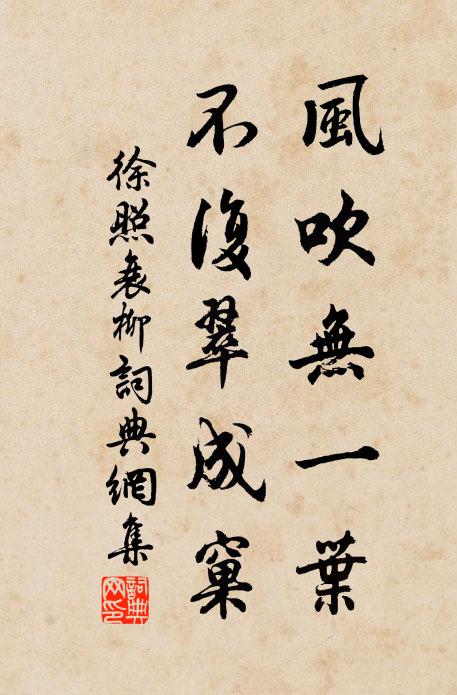 風吹無一葉
不復翠成窠
徐照衰柳詞典網集
詞典網印